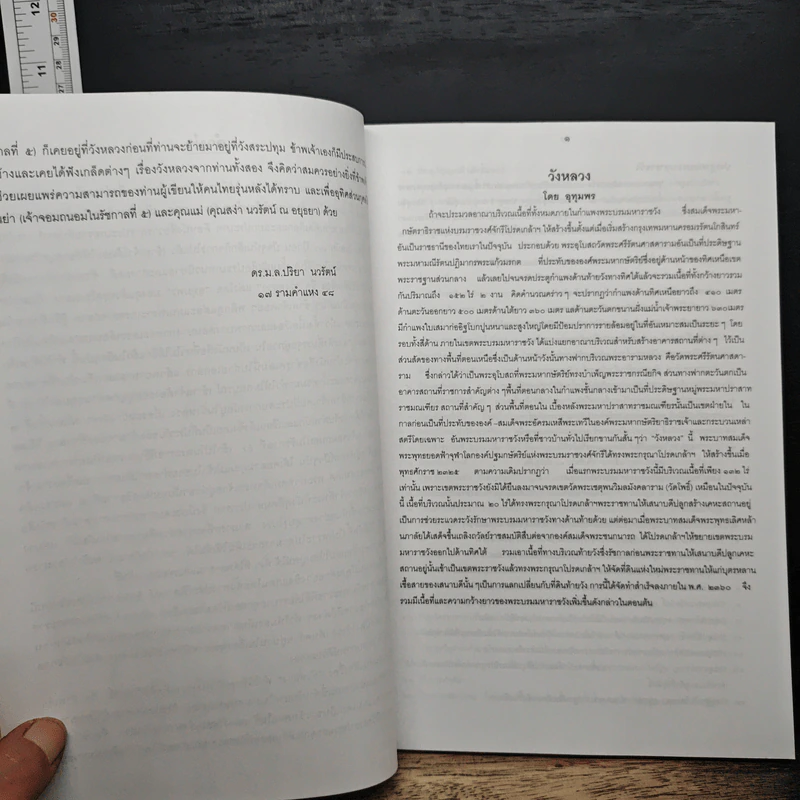 12
30
29
28
11
27
าลที่ ๕) ก็เคยอยู่ที่วังหลวงก่อนที่ท่านจะย้ายมาอยู่ที่วังสระปทุม ข้าพเจ้าเองก็มีประสบการ
้างและเคยได้ฟังเกล็ดต่างๆ เรื่องวังหลวงจากท่านทั้งสอง จึงคิดว่าสมควรอย่างยิ่งที่
้วยเผยแพร่ความสามารถของท่านผู้เขียนให้คนไทยรุ่นหลังได้ทราบ และเพื่ออุทิศส่วนกุศล
ย่า (เจ้าจอมถนอมในรัชกาลที่ ๕) และคุณแม่ (คุณสง่า นวรัตน์ ณ อยุธยา) ด้วย
ดร.ม.ล.ปริยา นวรัตน์
๑๗ รามคำแหง ๔๘
๑
วังหลวง
โดย อุทุมพร
ถ้าจะประมวลอาณาบริเวณเนื้อที่ทั้งหมดภายในกำแพงพระบรมมหาราชวัง ซึ่งสมเด็จพระมหา-
กษัตราธิราชแห่งบรมราชวงศ์จักรีโปรดเกล้าฯ ให้สร้างขึ้นตั้งแต่เมื่อเริ่มสร้างกรุงเทพมหานครอมรรัตนโกสินทร์
อันเป็นราชธานีของไทยเราในปัจจุบัน ประกอบด้วย พระอุโบสถวัดพระศรีรัตนศาสดารามอันเป็นที่ประดิษฐาน
พระมหามณีรัตนปฏิมากรพระแก้วมรกต ที่ประทับขององค์พระมหากษัตริย์ซึ่งอยู่ด้านหน้าของทิศเหนือเขต
พระราชฐานส่วนกลาง แล้วเลยไปจนจรดประตูกำแพงด้านท้ายวังทางทิศใต้แล้วจะรวมเนื้อที่ทั้งกว้างยาวรวม
กันปริมาณถึง ๑๕๒ ไร่ ๒ งาน คิดคำนวณคร่าว ๆ จะปรากฏว่ากำแพงด้านทิศเหนือยาวถึง ๔๑๐ เมตร
ด้านตะวันออกยาว ๕๐๐ เมตรด้านใต้ยาว ๓๖๐ เมตร แลด้านตะวันตกขนานฝั่งแม่น้ำเจ้าพระยายาว ๖๓๐เมตร
มีกำแพงใบเสมาก่ออิฐโบกปูนหนาและสูงใหญ่โดยมีป้อมปราการรายล้อมอยู่ในที่อันเหมาะสมเป็นระยะ ๆ โดย
รอบทั้งสี่ด้าน ภายในเขตพระบรมมหาราชวัง ได้แบ่งแยกอาณาบริเวณสำหรับสร้างอาคารสถานที่ต่าง ๆ ไว้เป็น
ส่วนสัดของทางพื้นที่ตอนเหนือซึ่งเป็นด้านหน้าวังนั้นทางฟากบริเวณพระอารามหลวง คือวัดพระศรีรัตนศาสดา-
ราม ซึ่งกล่าวได้ว่าเป็นพระอุโบสถที่พระมหากษัตริย์ทรงบำเพ็ญพระราชกรณียกิจ ส่วนทางฟากตะวันตกเป็น
อาคารสถานที่ราชการสำคัญต่าง ๆพื้นที่ตอนกลางในกำแพงชั้นกลางเข้ามาเป็นที่ประดิษฐานหมู่พระมหาปราสาท
ราชมณเฑียร สถานที่สำคัญ ๆ ส่วนพื้นที่ตอนใน เบื้องหลังพระมหาปราสาทราชมณเฑียรนั้นเป็นเขตฝ่ายใน ใน
กาลก่อนเป็นที่ประทับขององค์ -สมเด็จพระอัครมเหสีพระเทวีในองค์พระมหากษัตริยาธิราชเจ้าและกระบวนเหล่า
สตรีโดยเฉพาะ อันพระบรมมหาราชวังหรือที่ชาวบ้านทั่วไปเรียกขานกันสั้น ๆว่า “วังหลวง” นี้ พระบาทสมเด็จ
พระพุทธยอดฟ้าจุฬาโลกองค์ปฐมกษัตริย์แห่งพระบรมราชวงศ์จักรีได้ทรงพระกรุณาโปรดเกล้าฯ ให้สร้างขึ้นเมื่อ
พุทธศักราช ๒๓๒๕ ตามความเดิมปรากฏว่า เมื่อแรกพระบรมมหาราชวังนี้มีบริเวณเนื้อที่เพียง ๑๓๒ ไร่
เท่านั้น เพราะเขตพระราชวังยังมิได้ยื่นลงมาจนจรดเขตวัดพระเชตุพนวิมลมังคลาราม (วัดโพธิ์) เหมือนในปัจจุบัน
นี้ เนื้อที่บริเวณนั้นประมาณ ๒๐ ไร่ได้ทรงพระกรุณาโปรดเกล้าฯพระราชทานให้เสนาบดีปลูกสร้างเคหะสถานอยู่
เป็นการช่วยระแวดระวังรักษาพระบรมมหาราชวังทางด้านท้ายด้วย แต่ต่อมาเมื่อพระบาทสมเด็จพระพุทธเลิศหล้า
นภาลัยได้เสด็จขึ้นเถลิงถวัลย์ราชสมบัติสืบต่อจากองค์สมเด็จพระชนกนารถ ได้โปรดเกล้าฯให้ขยายเขตพระบรม
มหาราชวังออกไปด้านทิศใต้ รวมเอาเนื้อที่ทางบริเวณท้ายวังซึ่งรัชกาลก่อนพระราชทานให้เสนาบดีปลูกเคหะ
สถานอยู่นั้นเข้าเป็นเขตพระราชวังแล้วทรงพระกรุณาโปรดเกล้าฯ ให้จัดที่ดินแห่งใหม่พระราชทานให้แก่บุตรหลาน
เชื้อสายของเสนาบดีนั้น ๆเป็นการแลกเปลี่ยนกับที่ดินท้ายวัง การนี้ได้จัดทำสำเร็จลงภายใน พ.ศ. ๒๓๖๐ จึง
รวมมีเนื้อที่และความกว้างยาวของพระบรมมหาราชวังเพิ่มขึ้นดังกล่าวในตอนต้น